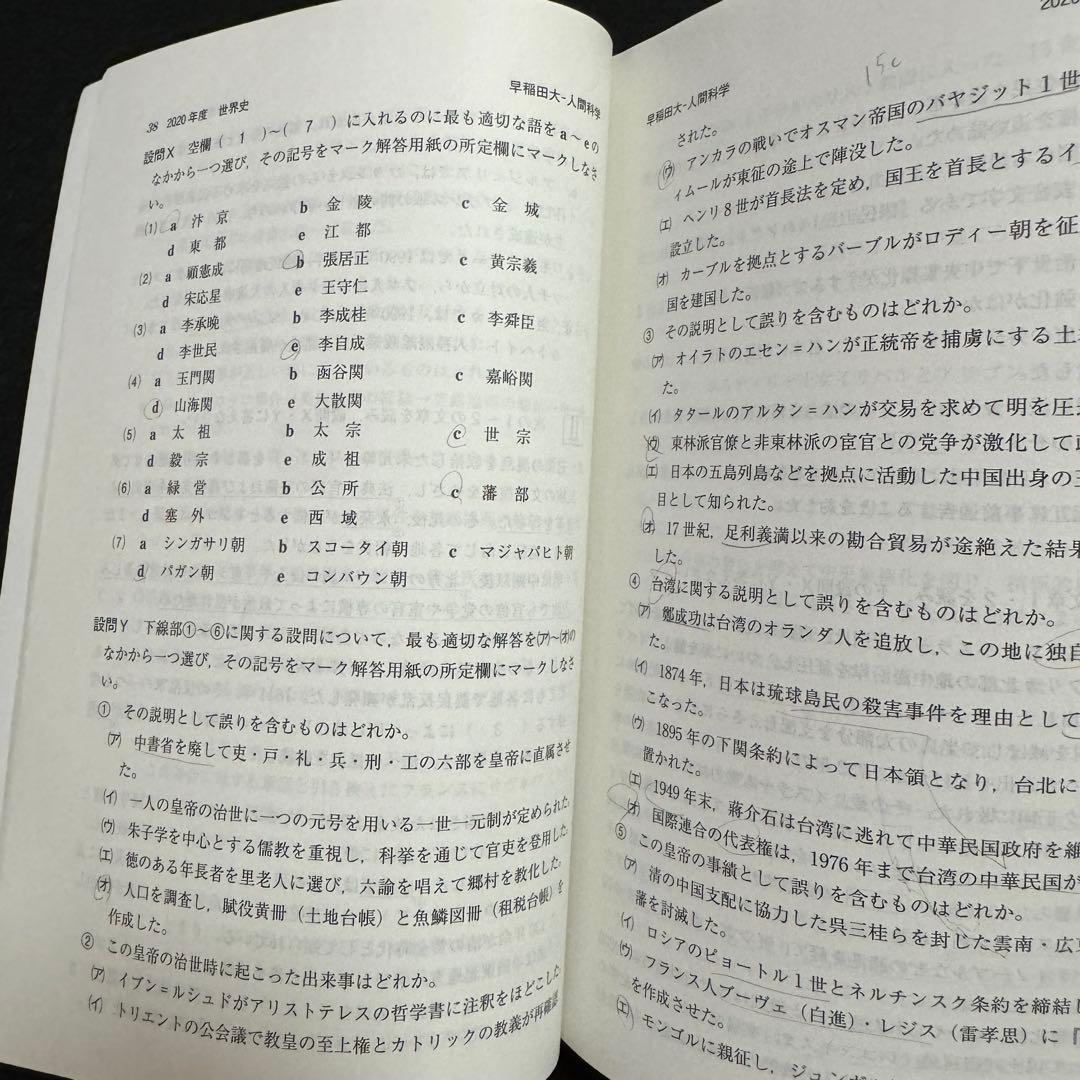 38 2020年度 世界史
早稲田大-人間科学
設問X 空欄( 1 )~( 7 )に入れるのに最も適切な語をa~eの
なかから一つ選び,その記号をマーク解答用紙の所定欄にマークしなさ
い。
(1) a 汴京 b 金陵 c 金城
d 東都 e 江都
(2) a 顧憲成 b 張居正 c 黄宗羲
d 宋応星 e 王守仁
(3) a 李承晩 b 李成桂 c 李舜臣
d 李世民 e 李自成
(4) a 玉門関 b 函谷関 c 嘉峪関
d 山海関 e 大散関
(5) a 太祖 b 太宗 c 世宗
d 毅宗 e 成祖
(6) a 緑営 b 公所 c 藩部
d 塞外 e 西域
(7) a シンガサリ朝 b スコータイ朝 c マジャパヒト朝
d パガン朝 e コンバウン朝
設問Y 下線部①~⑥に関する設問について,最も適切な解答を(ア)~(オ)の
なかから一つ選び,その記号をマーク解答用紙の所定欄にマークしなさ
い。
① その説明として誤りを含むものはどれか。
(ア) 中書省を廃して吏・戸・礼・兵・刑・工の六部を皇帝に直属させ
た。
(イ) 一人の皇帝の治世に一つの元号を用いる一世一元制が定められた。
(ウ) 朱子学を中心とする儒教を重視し,科挙を通じて官吏を登用した。
(エ) 徳のある年長者を里老人に選び,六諭を唱えて郷村を教化した。
(オ) 人口を調査し,賦役黄冊(土地台帳)と魚鱗図冊(租税台帳)を
作成した。
② この皇帝の治世時に起こった出来事はどれか。
(ア) イブン=ルシュドがアリストテレスの哲学書に注釈をほどこした
(イ) トリエントの公会議で教皇の至上権とカトリックの教義が再確認
早稲田大-人間科学
2020
15c
された。
(ウ) アンカラの戦いでオスマン帝国のバヤジット1世
ィムールが東征の途上で陣没した。
(エ) ヘンリ8世が首長法を定め,国王を首長とするイ
設立した。
(オ) カーブルを拠点とするバーブルがロディー朝を征
国を建国した。
③ その説明として誤りを含むものはどれか。
(ア) オイラトのエセン=ハンが正統帝を捕虜にする土
た。
(イ) タタールのアルタン=ハンが交易を求めて明を圧
(ウ) 東林派官僚と非東林派の宦官との党争が激化して
(エ) 日本の五島列島などを拠点に活動した中国出身の王
目として知られた。
(オ) 17世紀,足利義満以来の勘合貿易が途絶えた結果
した。
④ 台湾に関する説明として誤りを含むものはどれか。
(ア) 鄭成功は台湾のオランダ人を追放し,この地に独自
た。
(イ) 1874年,日本は琉球島民の殺害事件を理由として
こなった。
(ウ) 1895年の下関条約によって日本領となり,台北に
置かれた。
(エ) 1949年末,蔣介石は台湾に逃れて中華民国政府を維
(オ) 国際連合の代表権は,1976年まで台湾の中華民国が
⑤ この皇帝の事績として誤りを含むものはどれか。
(ア) 清の中国支配に協力した呉三桂らを封じた雲南・広東
藩を討滅した。
(イ) ロシアのピョートル1世とネルチンスク条約を締結し
(ウ) フランス人ブーヴェ(白進)・レジス(雷孝思)に『
を作成させた。
(エ) モンゴルに親征し,ジュンガル